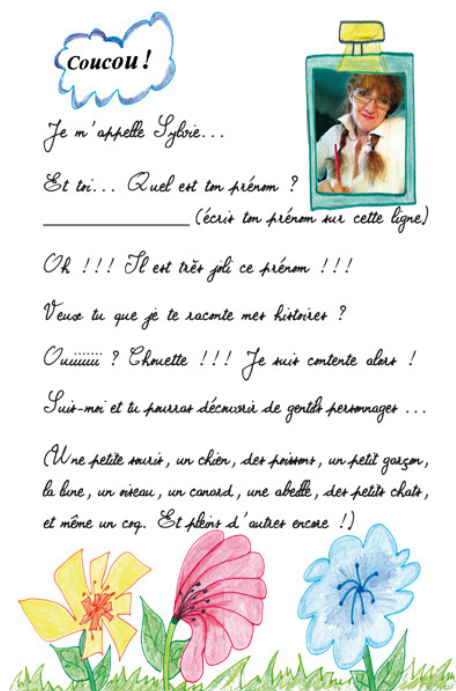 Coucou !
Je m'appelle Sylvie...
Et toi... Quel est ton prénom ?
____________________ (écris ton prénom sur cette ligne)
Oh !!! Il est très joli ce prénom !!!
Veux tu que je te raconte mes histoires ?
Ouiiiiiii ? Chouette !!! Je suis contente alors !
Suis-moi et tu pourras découvrir de gentils personnages ...
(Une petite souris, un chien, des poissons, un petit garçon,
la lune, un oiseau, un canard, une abeille, des petits chats,
et même un coq. Et pleins d'autres encore !)